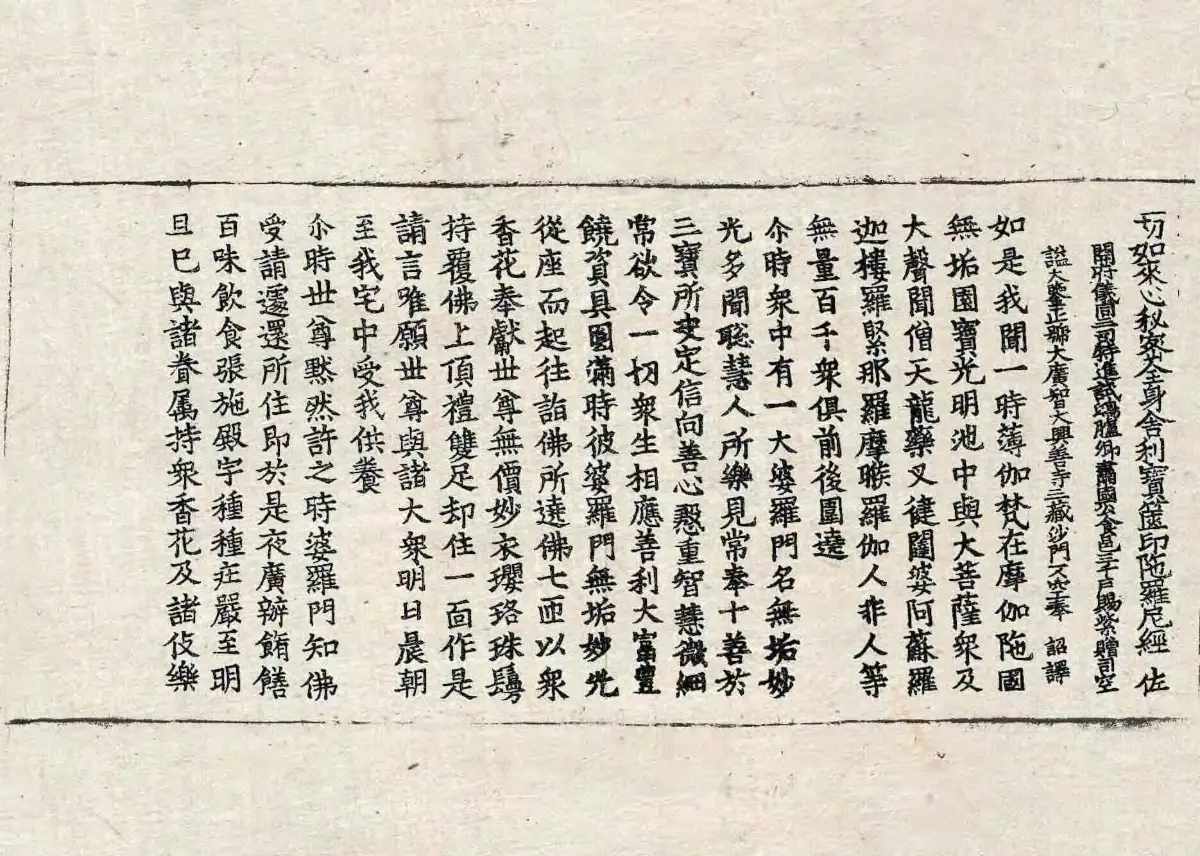 一切如來心秘密全身舍利寶篋印陁羅尼經 佐
開府儀同三司特進試鴻臚卿肅國公食邑三千戶賜紫贈司空
謚大鑒正號大廣智大興善寺三藏沙門不空奉 詔譯
如是我聞一時薄伽梵在摩伽陁國
無垢園寶光明池中與大菩薩衆及
大聲聞僧天龍藥叉健闥婆阿蘇羅
迦樓羅緊那羅摩睺羅伽人非人等
無量百千衆俱前後圍遶
尒時衆中有一大婆羅門名無垢妙
光多聞聡慧人所樂見常奉十善於
三寶所决定信向善心慇重智慧微細
常欲令一切衆生相應善利大富豐
饒資具圓滿時彼婆羅門無垢妙光
從座而起往詣佛所遶佛七匝以衆
香花奉獻世尊無價妙衣瓔珞珠鬘
持覆佛上頂禮雙足却住一面作是
請言唯願世尊與諸大衆明日晨朝
至我宅中受我供養
尒時世尊默然許之時婆羅門知佛
受請遽還所住即於是夜廣辦餚饍
百味飲食張施殿宇種種莊嚴至明
旦已與諸眷属持衆香花及諸伎樂